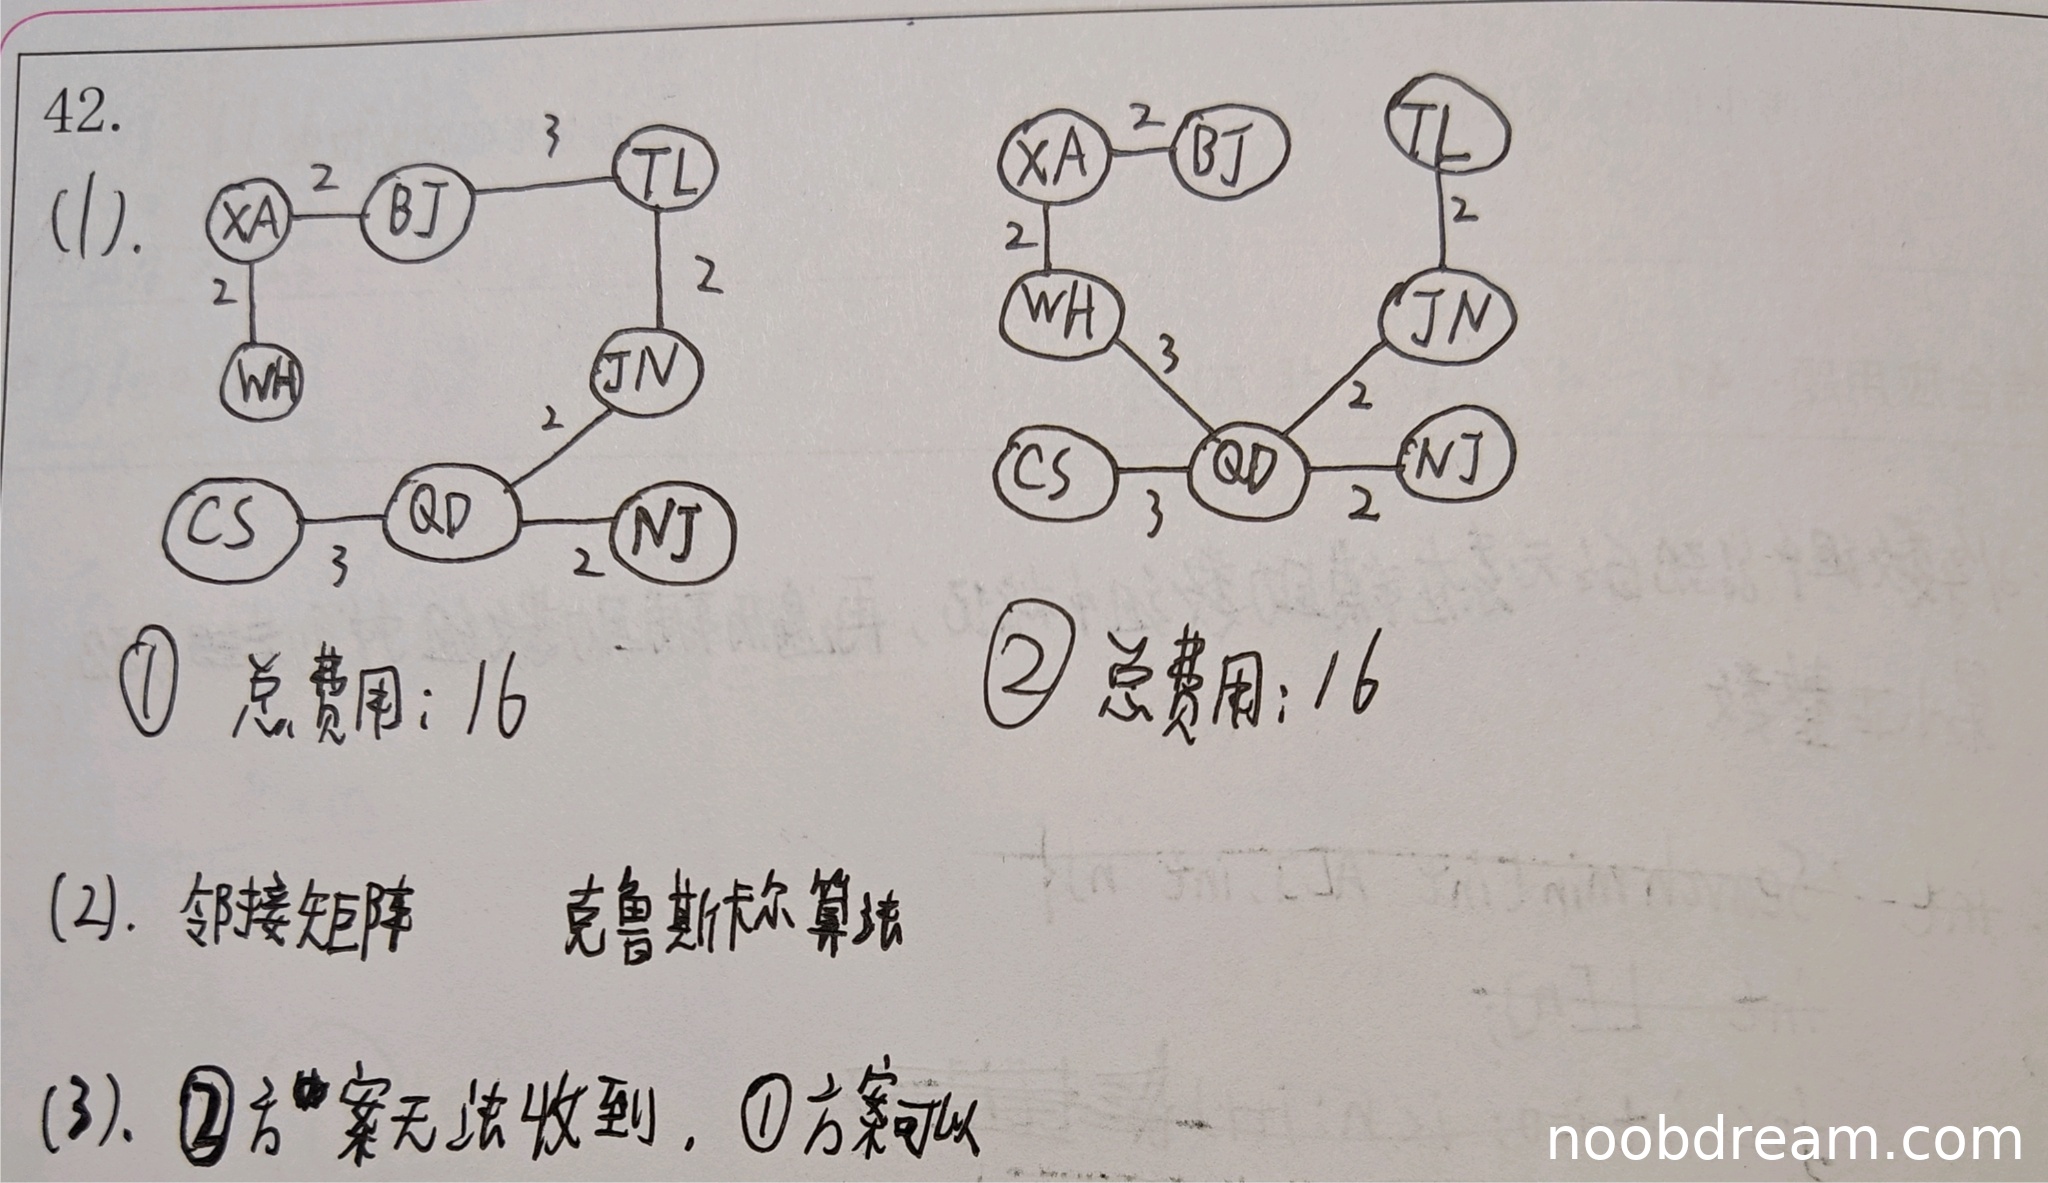 42.
(1).
XA 2 BJ 3 TL
2 2
WH JN
2
CS 3 QD 2 NJ
① 总费用: 16
XA 2 BJ TL
2 2
WH JN
3 2
CS 3 QD 2 NJ
② 总费用: 16
(2). 邻接矩阵 克鲁斯卡尔算法
(3). ②方案无法收到. ①方案可以
noobdream.com